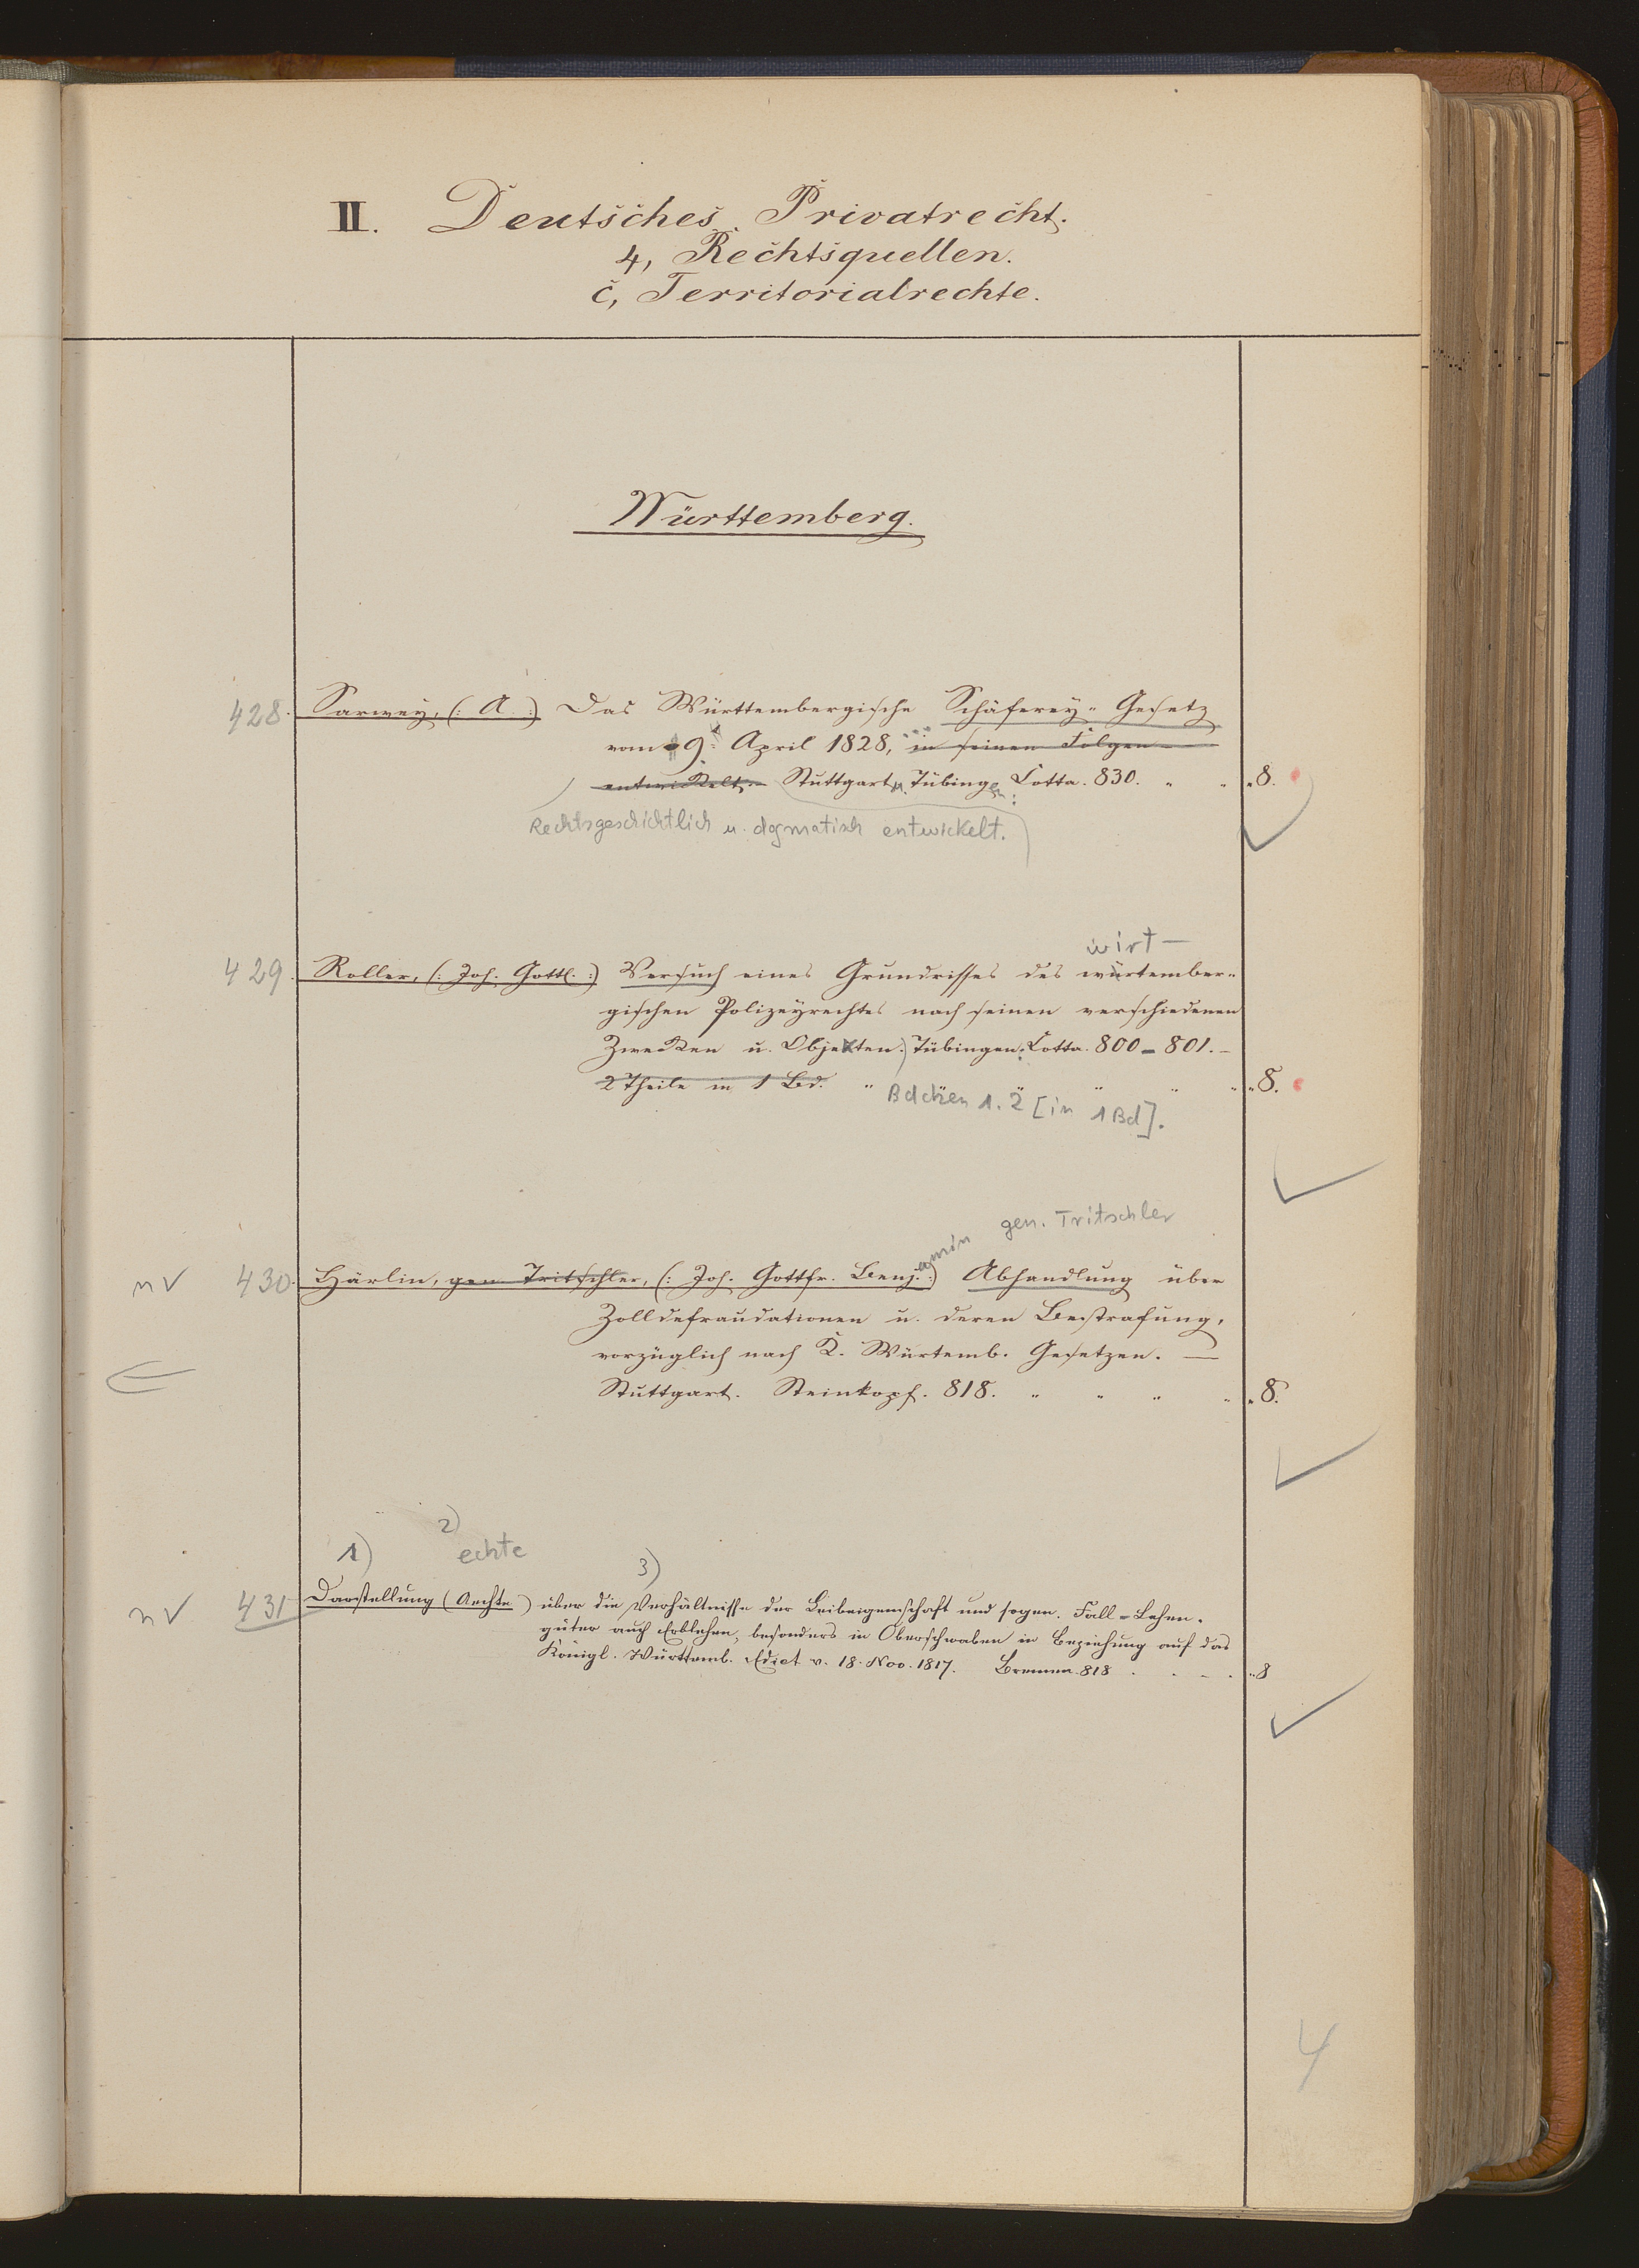 II. Deutsches Privatrecht.
4, Rechtsquellen.
c, Territorialrechte.
Württemberg.
428. Sarwey, (: A. :) Das Württembergische Schäferey-Gesetz
vom 9. April 1828, in seinen Folgen
entwickelt. Stuttgart u. Tübingen: Cotta. 830. " " " 8.
Rechtsgeschichtlich u. dogmatisch entwickelt.
wirt-
429. Roller, (: Joh. Gottl. :) Versuch eines Grundrisses des würtember-
gischen Polizeyrechtes nach seinen verschiedenen
Zwecken u. Objekten.) Tübingen: Cotta. 800-801. -
2 Theile in 1 Bd. " " " " " 8.
Bdchen 1. 2 [in 1 Bd].
gen. Tritschler
amin
n V 430. Härlin, gen. Tritschler, (: Joh. Gottfr. Benj. :) Abhandlung über
Zolldefraudationen u. deren Bestrafung,
vorzüglich nach K. Würtemb. Gesetzen. —
Stuttgart. Steinkopf. 818. " " " " " 8.
1) 2) echte 3)
n V 431 Darstellung (Aechte) über die Verhältnisse der Leibeigenschaft und sogen. Fall-Lehen-
güter auch Erblehen, besonders in Oberschwaben in Beziehung auf das
Königl. Württemb. Edict v. 18. Nov. 1817. Bremen. 818 . . . . " 8
4